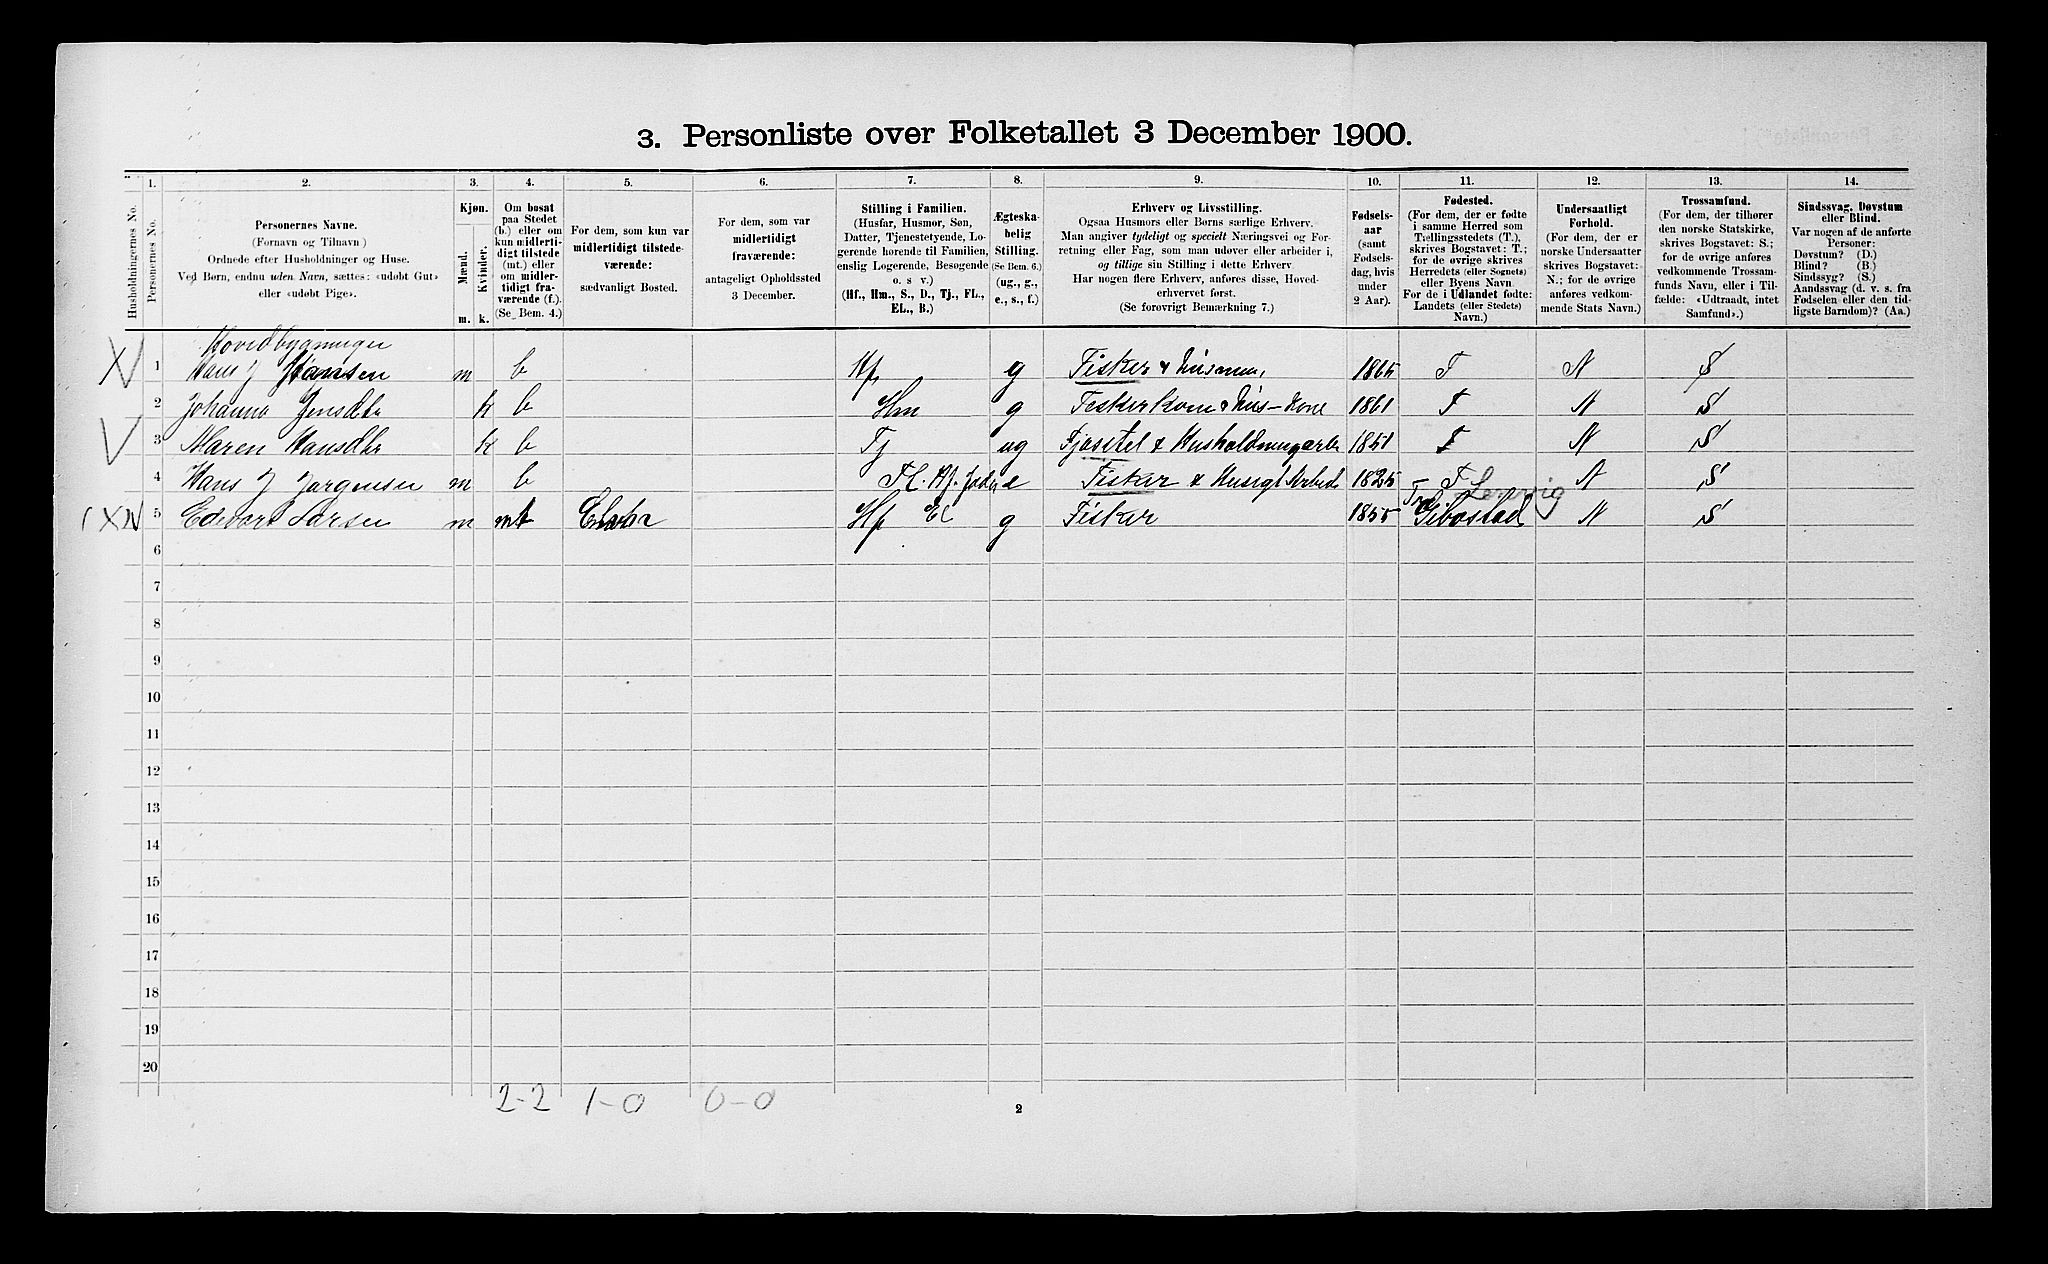 3. Personliste over Folketallet 3 December 1900.
1. 2. 3. 4. 5. 6. 7. 8. 9. 10. 11. 12. 13. 14.
Husholdningernes No.
Personernes No.
Personernes Navne.
(Fornavn og Tilnavn)
Ordnede efter Husholdninger og Huse.
Ved Børn, endnu uden Navn, sættes: «udøbt Gut»
eller «udøbt Pige».
Kjøn.
Mænd.
Kvinder.
m. k.
Om bosat
paa Stedet
(b.) eller om
kun midlerti-
digt tilstede
(mt.) eller
om midler-
tidigt fra-
værende (f.)
(Se Bem. 4.)
For dem, som kun var
midlertidigt tilstede-
værende:
sædvanligt Bosted.
For dem, som var
midlertidigt
fraværende:
antageligt Opholdssted
3 December.
Stilling i Familien.
(Husfar, Husmor, Søn,
Datter, Tjenestetyende, Lo-
gerende hørende til Familien,
enslig Logerende, Besøgende
o. s. v.)
(Hf., Hm., S., D., Tj., FL.,
EL., B.)
Ægteska-
belig
Stilling.
(Se Bem. 6.)
(ug., g.,
e., s., f.)
Erhverv og Livsstilling.
Ogsaa Husmors eller Børns særlige Erhverv.
Man angiver tydeligt og specielt Næringsvei og For-
retning eller Fag, som man udøver eller arbeider i,
og tillige sin Stilling i dette Erhverv.
Har nogen flere Erhverv, anføres disse, Hoved-
erhvervet først.
(Se forøvrigt Bemærkning 7.)
Fødsels-
aar
(samt
Fødsels-
dag, hvis
under
2 Aar).
Fødested.
(For dem, der er fødte
i samme Herred som
Tællingsstedets (T.),
skrives Bogstavet: T.;
for de øvrige skrives
Herredets (eller Sognets)
eller Byens Navn.
For de i Udlandet fødte:
Landets (eller Stedets)
Navn.)
Undersaatligt
Forhold.
(For dem, der er
norske Undersaatter
skrives Bogstavet:
N.; for de øvrige
anføres vedkom-
mende Stats Navn.)
Trossamfund.
(For dem, der tilhører
den norske Statskirke,
skrives Bogstavet: S.;
for de øvrige anføres
vedkommende Trossam-
funds Navn, eller i Til-
fælde: «Udtraadt, intet
Samfund».)
Sindssvag, Døvstum
eller Blind.
Var nogen af de anførte
Personer:
Døvstum? (D.)
Blind? (B.)
Sindssyg? (S.)
Aandssvag (d. v. s. fra
Fødselen eller den tid-
ligste Barndom)? (Aa.)
Hovedbygninger
1 Hans J Hansen m b Hf g Fisker & Husman 1865 T N S
2 Johanna Jensdtr k b Hm g Feskerkone & Hus-Kone 1861 T N S
3 Maren Hansdtr k b Tj ug Fjøsstel & Husholdningarb 1851 T N S
4 Hans J Jørgensen m b FL. Hf. fader e Fisker & Husligt Arbeide 1825 T N S
Lenvig
5 Edevart Larsen m mt Hf El g Fisker 1855 Gibostad N S
6
7
8
9
10
11
12
13
14
15
16
17
18
19
20
2-2 1-0 0-0
2